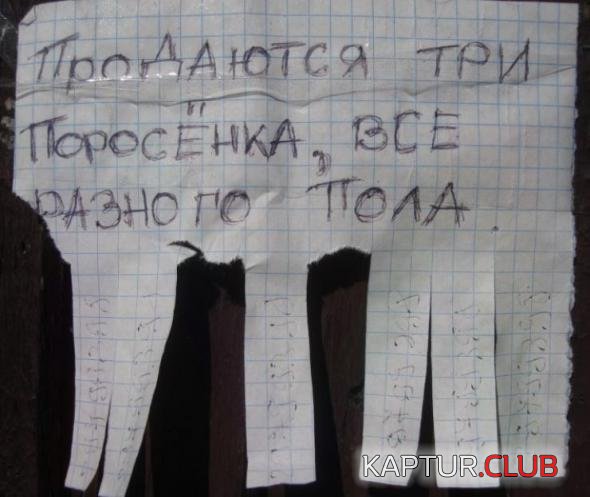 ПРОДАЮТСЯ ТРИ
ПОРОСЁНКА, ВСЕ
РАЗНОГО ПОЛА.
KAPTUR.CLUB